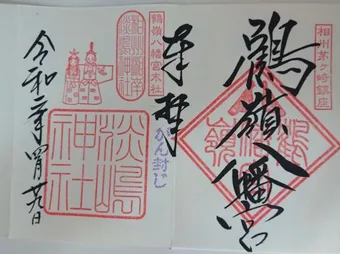 相州茅ヶ崎鎮座
鶴嶺八幡宮
奉拝
がん封じ
鶴嶺八幡宮末社
淡嶋神社
令和二年四月廿九日